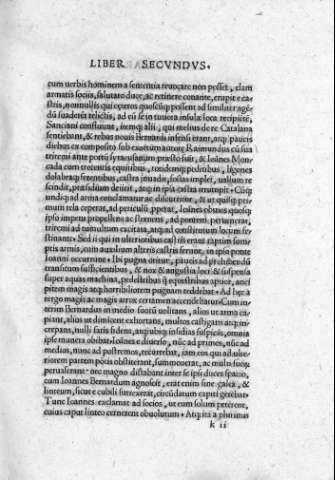 LIBER SECVNDVS.
cum uerbis hominem a sententia reuocare non posset, clam
armatis sociis, salutato duce, ac retinere conante, erupit e ca
stris, nonnullis qui ceteros quoscūq; possent ad similiter agē
dū suaderēt relictis, ad eū se in tutiora insulę loca recipiūt,
Sanciani constituūt, itemq; alii, qui melius de re Catalana
sentiebant, & rebus nouis Bernardi infensi erant, atq; paucis
diebus ex composito sub exortum auroræ Raimundus cū sua
triremi ante portū syracusanum præsto fuit, & Ioānes Mon
cada cum trecentis equitibus, totidemq; peditibus, ligones
dolabrasq; ferentibus, castra inuadit, fossas implet, uallum re
scindit, præsidium deiicit, atq; in ipsa castra irrumpit. Cūq;
undiq; ad arma conclamaretur ac discurreretur, & ut quisq; pri
mum tela ceperat, ad periculū pperat, Ioānes obuios quosq;
ipso impetu propellens ac sternens, ad pontem peruenerat,
triremi ad tumultum excitata, atq; ad constitutum locum fe
stinante. Sed ii qui in ulterioribus castris erant raptim sum
ptis armis, cum auxilium alteris castris ferrent, in ipso ponte
Ioanni occurrunt. Ibi pugna oritur, paucis ad phibendū
transitum sufficientibus, & nox & angustia loci & suspensa
super aquas machina, pedestribus q̄ equestribus aptior, anci
pitem magis atq; horribiliorem pugnam reddebat. Ad hęc a
tergo magis ac magis atrox certamen accendebatur. Cum in
terim Bernardus in medio foro uolitans, alios ut arma ca
piant, alios ut dimicent exhortans, multos castigans atq; in
crepans, nulli satis fidens, atq; ubiq; insidias suspicās, omnia
ipse munera obibat. Ioānes e diuerso, nūc ad primos, nūc ad
medios, nunc ad postremos, recurrebat, iam eis qui ad ulte
riorem partem pōtis obsisterant, summouerat, ac multi
nec magno distabant inter se ipsi duces spatio,
cum Ioannes Bernardum agnoscit, erat enim sine galea, &
linteum, sicut e cubili surrexerat, circūdatum capiti gerebat.
Tunc Ioannes exclamat ad socios, ut eum solum peterent,
cuius caput linteo cernerent obuolutum. Atq; ita a pluribus
k ii